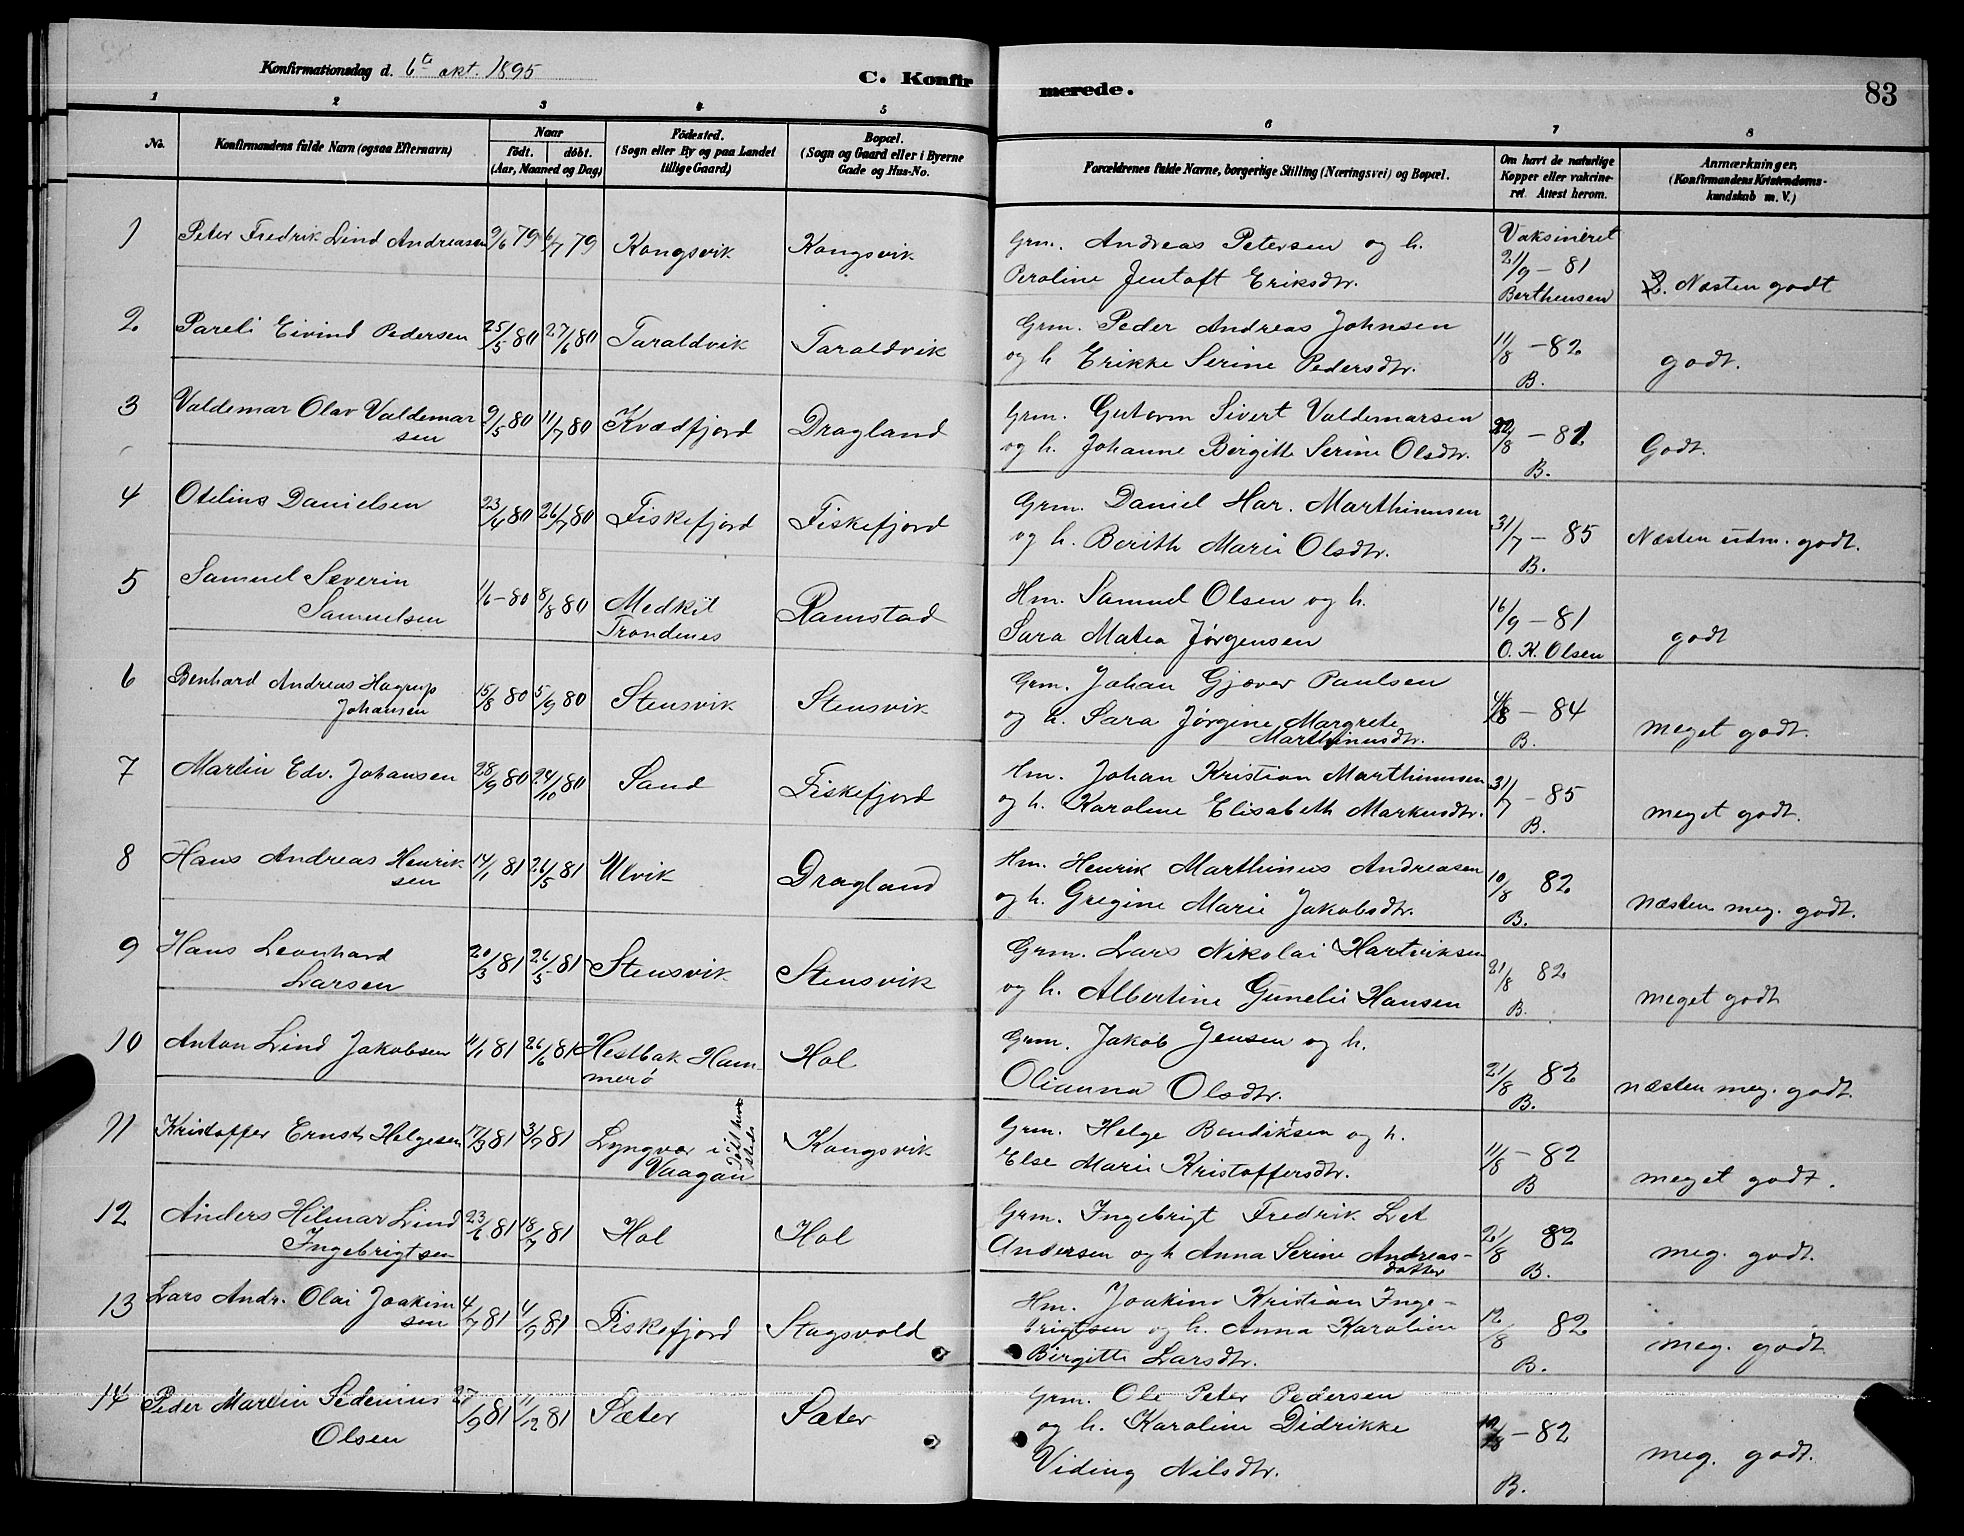 Konfirmationsdag d. 6te okt. 1895
C. Konfirmerede.
83
1 2 3 4 5 6 7 8
No.
Konfirmandens fulde Navn (ogsaa Efternavn)
Naar
födt. döbt.
(Aar, Maaned og Dag)
Födested.
(Sogn eller By og paa Landet
tillige Gaard)
Bopæl.
(Sogn og Gaard eller i Byerne
Gade og Hus-No.
Forældrenes fulde Navne, borgerlige Stilling (Næringsvei) og Bopæl.
Om havt de naturlige
Kopper eller vakcine-
ret. Attest herom.
Anmærkninger.
(Konfirmandens Kristendoms-
kundskab m. V.)
1 Peter Fredrik Lind Andreasen 9/6 79 6/7 79 Kongsvik Kongsvik Grm. Andreas Petersen og h. Vaksineret
Peroline Jentoft Eriksdtr. 21/9 - 81
Berthensen 2. Næsten godt
2 Pareli Eivind Pedersen 25/5 80 27/6 80 Taraldvik Taraldvik Grm. Peder Andreas Johnsen
og h Erikke Serine Pedersdtr. 11/8 - 82 godt.
B.
3 Valdemar Olav Valdemar 9/5 80 11/7 80 Kvædfjord Dragland Grm. Gutorm Sivert Valdemarsen
sen og h. Johanne Birgitte Serine Olsdtr. /8 - 82 Godt.
B.
4 Otelius Danielsen 23/4 80 26/7 80 Fiskefjord Fiskefjord Grm. Daniel Har. Marthinusen
og h. Berith Marie Olsdtr. 31/7 - 85 Næsten udm. godt.
B.
5 Samuel Severin 1/6 - 80 8/8 80 Medkil Ramstad Hm. Samuel Olsen og h. 16/9 - 81
Samuelsen Trondenes Sara Matea Jørgensen O. K. Olsen godt
6 Benhard Andreas Hagrup 15/8 80 5/9 80 Stensvik Stensvik Grm. Johan Gjæver Paulsen
Johansen og h. Sara Jørgine Margrete /8 - 84 meget godt.
Marthinusdtr. B.
7 Martin Edv. Johansen 28/9 80 24/10 80 Sand Fiskefjord Hm. Johan Kristian Marthinusen
og h. Karoline Elisabeth Markusdtr. 31/7 - 85 meget godt.
B.
8 Hans Andreas Henrik 14/1 81 26/5 81 Ulvik Dragland Hm. Henrik Marthinus Andreasen
sen og h. Gregine Marie Jakobsdtr. 10/8 82 næsten meg. godt.
B.
9 Hans Leonhard 20/3 81 26/5 81 Stensvik Stensvik Grm. Lars Nikolai Hartviksen
Larsen og h. Albertine Gunelie Hansen 21/8 82 meget godt
B.
10 Anton Lind Jakobsen 11/1 81 26/6 81 Hestbak Ham- Hol Grm. Jakob Jensen og h.
merö Olianna Olsdtr. 21/8 82 næsten meg. godt.
B.
11 Kristoffer Ernst Helgesen 17/3 81 3/7 81 Lyngvær i Kongsvik Grm. Helge Bendiktsen og h.
Vaagan Else Marie Kristoffersdtr. 11/8 - 82 meget godt.
B
12 Anders Hilmar Lind 23/6 81 18/7 81 Hol Hol Grm. Ingebrigt Fredrik Let
Ingebrigtsen Andersen og h Anna Serine Andreas- 21/8 82 meg. godt.
datter B.
13 Lars Andr. Olai Joakim 4/7 81 4/9 81 Fiskefjord Stagsvold Hm. Joakim Kristian Inge-
sen brigtsen og h. Anna Karoline 12/8 82 meg. godt
Birgitte Larsdtr. B.
14 Peder Martin Sedenius /9 81 11/12 81 Sæter Sæter Grm. Ole Peter Pedersen
Olsen og h. Karoline Didrikke /8 - 82 meg. godt.
Viding Nilsdtr. B.